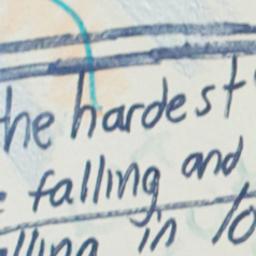 the hardest
falling and
lling in lo